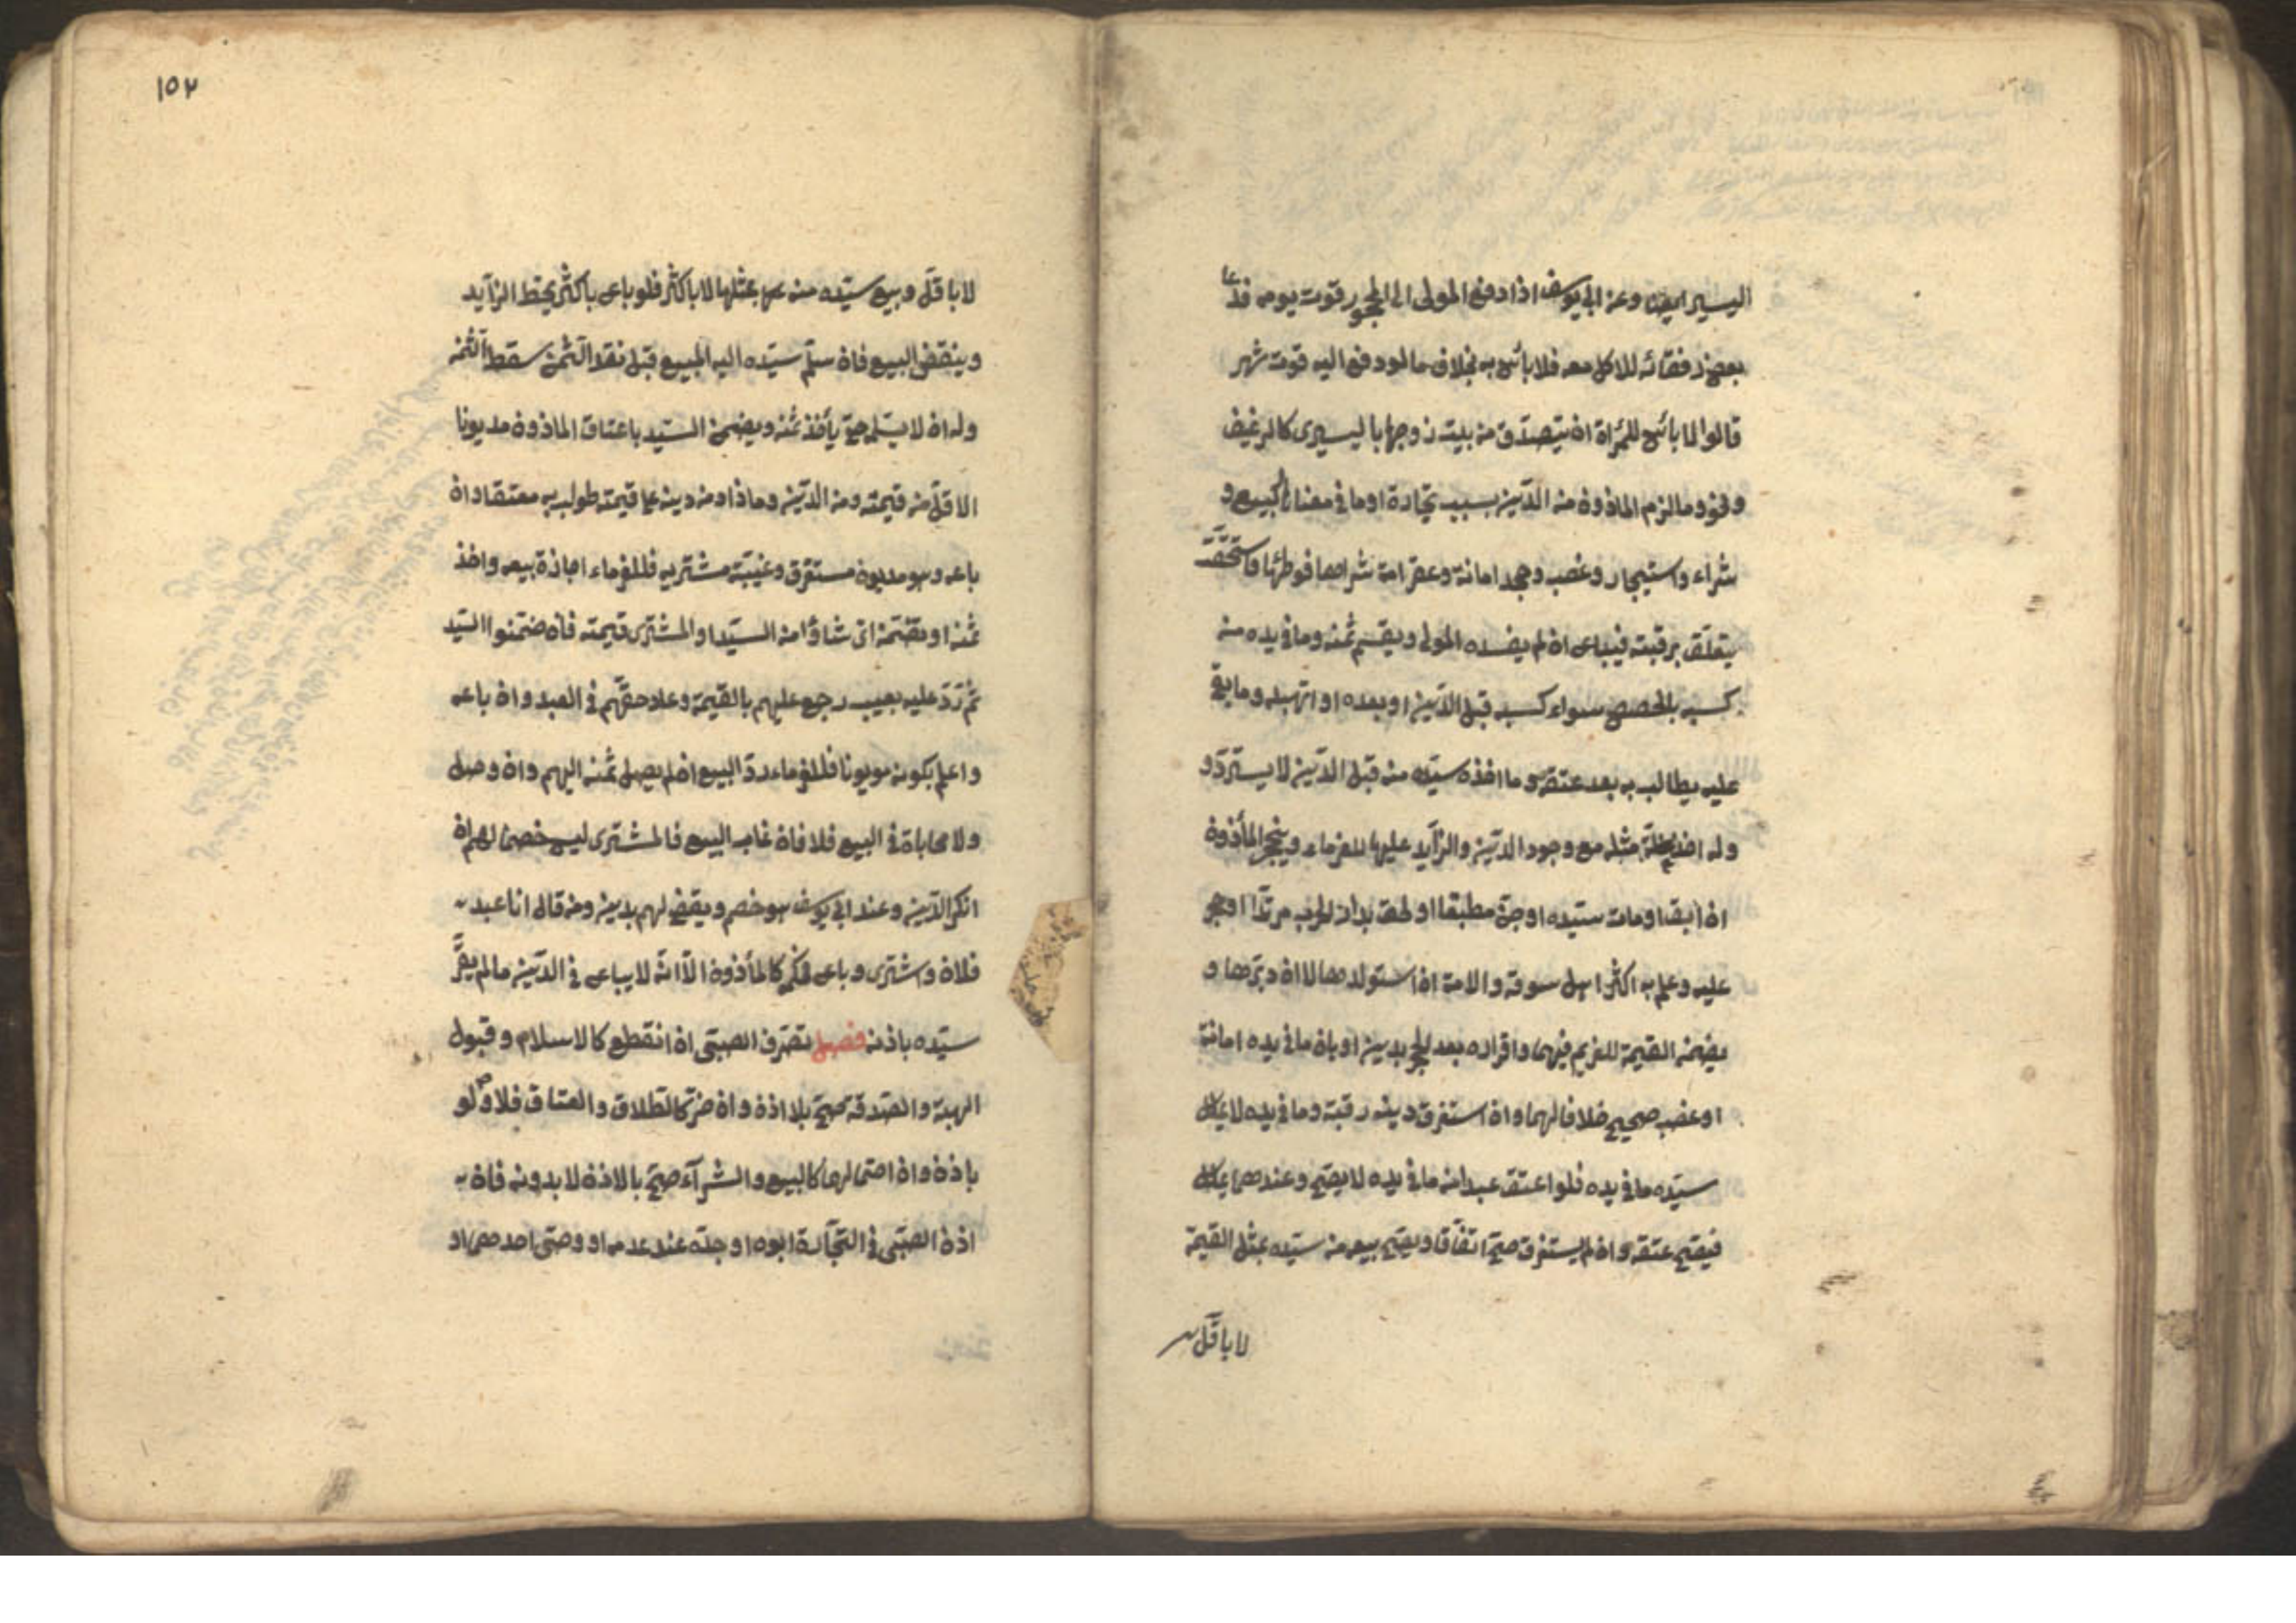 اليسير ايضا وعن ابي يوسف اذا دفع المولى الى المحجور قوت يومه فدعا
بعض رفقائه للاكل معه فلا بأس به بخلاف ما لو دفع اليه قوت شهر
قالوا لا بأس للمرأة ان يتصدق من بيت زوجها باليسيرى كالرغيف
ونحوه وما لزم الماذون من الدين بسبب تجارة او ما في معناها كبيع و
شراء واستيجار وغصب وجحد امانة وعقر امة شراها فوطئها فاستحقت
يتعلق برقبته فيباع ان لم يفده المولى ويقسم ثمنه وما في يده من
كسبه بالحصص سواء كسبه قبل الدين او بعده او اتهبه وما بقي
عليه يطالب به بعد عتقه وما اخذه سيده منه قبل الدين لا يسترد و
وله اخذ غلة مثله مع وجود الدين والزايد عليها للغرماء وينحجر المأذون
ان ابق او مات سيده او جن مطبقا او لحق بدار الحرب مرتدا او حجر
عليه وعلم به اكثر اهل سوقه والامة ان استولدها لا ان دبرها و
يضمن القيمة للغريم فيهما واقراره بعد الحجر بدين او بان ما في يده امانة
او غصب صحيح خلافا لهما وان استغرق دينه رقبته وما في يده لا يملك
سيده ما في يده فلو اعتق عبدا منه ما في يده لا يصح وعندهما يملك
فيصح عتقه وان لم يستغرق صح اتفاقا ويصح بيعه من سيده بمثل القيمة
لا باقل
١٥٢
لا باقل وبيع سيده منه بمثلها لا باكثر فلو باع باكثر يحط الزايد
وينقض البيع فان سلم سيده اليه المبيع قبل نقد الثمن سقط الثمن
وله ان لا يسلم حتى يأخذ ثمنه ويضمن السيد باعتاق الماذون مديونا
الاقل من قيمته ومن الدين وما زاد من دينه على قيمته طولب به معتقا وان
باعه وهو مديون مستغرق وغيبة مشتريه فللغرماء اجازة بيعه واخذ
ثمنه او تضمن اى شاؤا من السيد او المشترى قيمته فان ضمنوا السيد
ثم رد عليه بعيب رجع عليهم بالقيمة وعاد حقهم في العبد وان باعه
واعلم بكونه مديونا فللغرماء رد البيع ان لم يصل ثمنه اليهم وان وصل
ولا محاباة في البيع فلا فان غاب البيع فالمشترى ليس خصما لهم ان
انكر الدين وعند ابي يوسف هو خصم ويقضى لهم بدين ومن قال انا عبد
فلان واشترى وباع فحكمه كالمأذون الا انه لا يباع في الدين ما لم يقر
سيده باذنه فصل تصرف الصبى ان انقطع كالاسلام وقبول
الهبة والصدقة صح بلا اذن وان ضر كالطلاق والعتاق فلا ولو
باذن وان احتمالهما كالبيع والشرآء صح بالاذن لا بدونه فان
اذن الصبى في التجارة ابوه او جده عند عدمه او وصى احدهما او